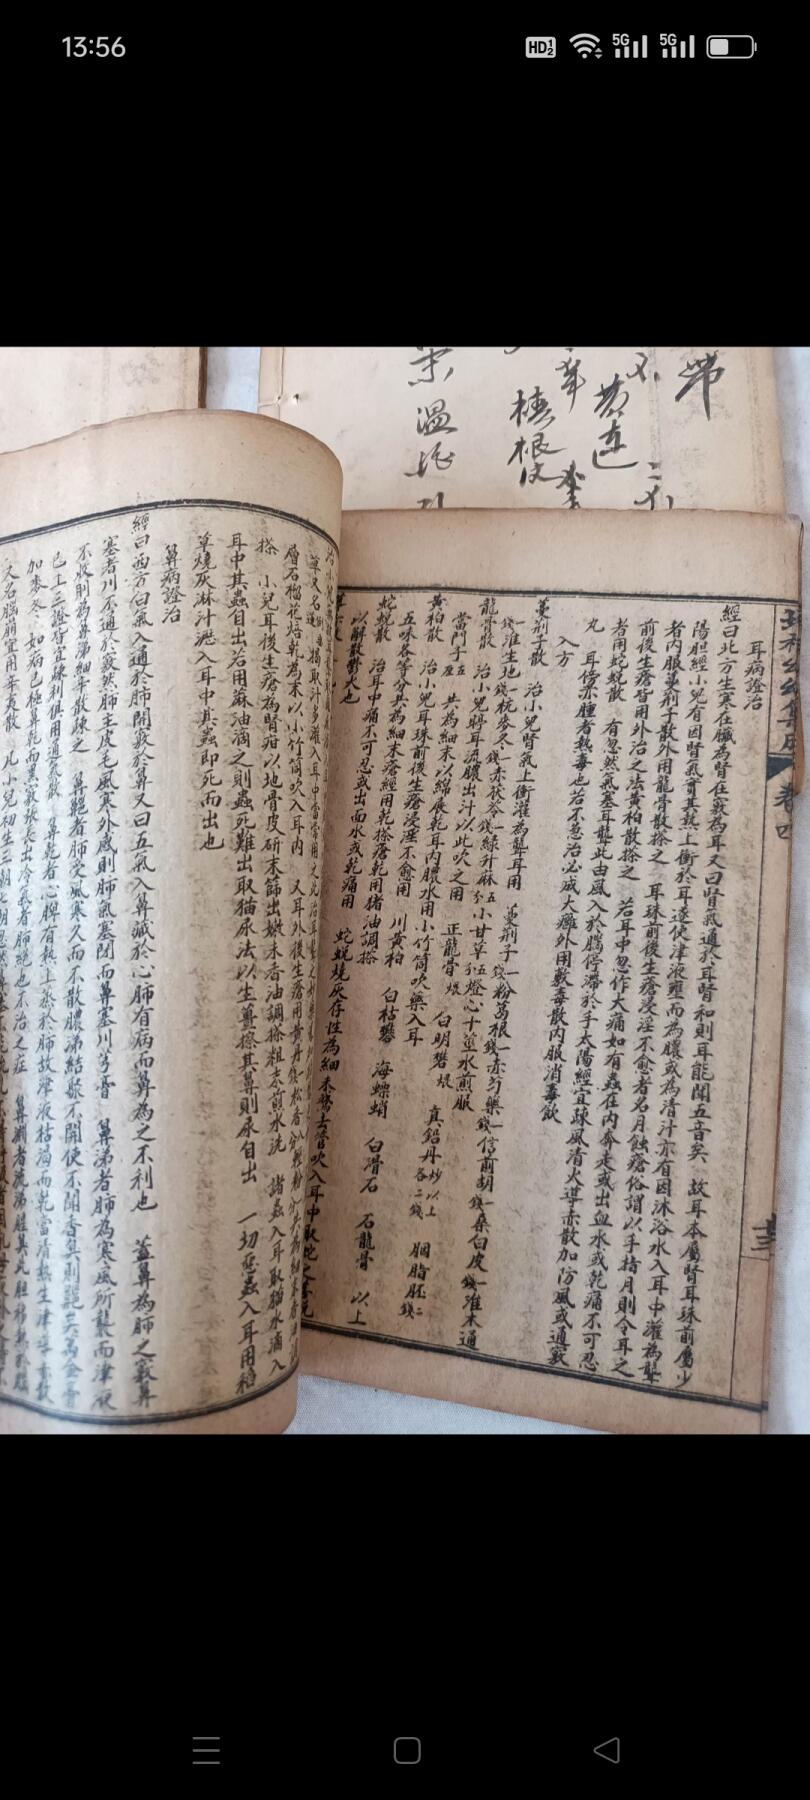 13:56
HD 5G 5G
帶
黄連
椿根皮
宋溫
幼幼集成 卷四
耳病證治
經曰北方生寒在臟為腎在竅為耳又曰腎氣通於耳腎和則耳能聞五音矣 故耳本屬腎耳珠前屬少
陽胆經小兒有因腎氣實其熱上衝於耳遂使津液壅而為膿或為清汁亦有因沐浴水入耳中灌為聾
者內服蔓荊子散外用龍骨散搽之 耳珠前後生瘡浸淫不愈者名月蝕瘡俗謂以手指月則令耳之
前後生瘡皆用外治之法黄柏散搽之 若耳中忽作大痛如有蟲在內奔走或出血水或乾痛不可忍
者用蛇蛻散 有忽然氣塞耳聾此由風入於腦停滯於手太陽經宜疎風清火導赤散加防風或通竅
丸 耳傍赤腫者熱毒也若不急治必成大癰外用敷毒散內服消毒飲
入方
蔓荊子散 治小兒腎氣上衝灌為聾耳用 蔓荊子一錢粉葛根一錢赤芍藥一錢信前胡一錢桑白皮一錢淮木通
一錢淮生地一錢杭麥冬一錢赤茯苓一錢綠升麻五分小甘草五分燈心十莖水煎服
龍骨散 治小兒聤耳流膿出汁以此吹之用 正龍骨煨 白明礬煨 真鉛丹炒以上各二錢 胭脂胚二錢
當門子五厘 共為細末以綿展乾耳內膿水用小竹筒吹藥入耳
黄柏散 治小兒耳珠前後生瘡浸淫不愈用 川黄柏 白枯礬 海螵蛸 白滑石 石龍骨 以上
五味各等分共為細末瘡經用乾搽瘡乾用猪油調搽
蛇蛻散 治耳中痛不可忍或出血水或乾痛用 蛇蛻燒灰存性為細末鵞去管吹入耳中
以解散鬱火也
層石榴花焙乾為末以小竹筒吹入耳內 又耳外後生瘡用黄丹
搽 小兒耳後生瘡為腎疳以地骨皮研末篩出嫩末香油調搽粗末煎水洗 諸蟲入耳取猫水滴入
耳中其蟲自出若用蔴油滴之則蟲死難出取猫尿法以生薑擦其鼻則尿自出 一切惡蟲入耳用稻
草燒灰淋汁滴入耳中其蟲即死而出也
鼻病證治
經曰西方白氣入通於肺開竅於鼻又曰五氣入鼻藏於心肺有病而鼻為之不利也 蓋鼻為肺之竅鼻
塞者川不通於竅然肺主皮毛風寒外感則肺氣塞閉而鼻塞川芎膏 鼻涕者肺為寒風所襲而津液
不收則為鼻涕細辛散疎之 鼻齆者肺受風寒久而不散膿涕結聚不開使不聞香臭則齆矣萬金膏
已上三證皆宜疎利俱用通氣散 鼻乾者心脾有熱上蒸於肺故津液枯渴而乾當清熱生津導赤散
加麥冬 如病已極鼻乾而黑竅張長出冷氣者肺絕也不治之症 鼻淵者流涕腥臭此胆移熱於腦
又名腦崩宜用辛夷散 凡小兒初生三朝七朝忽然鼻塞